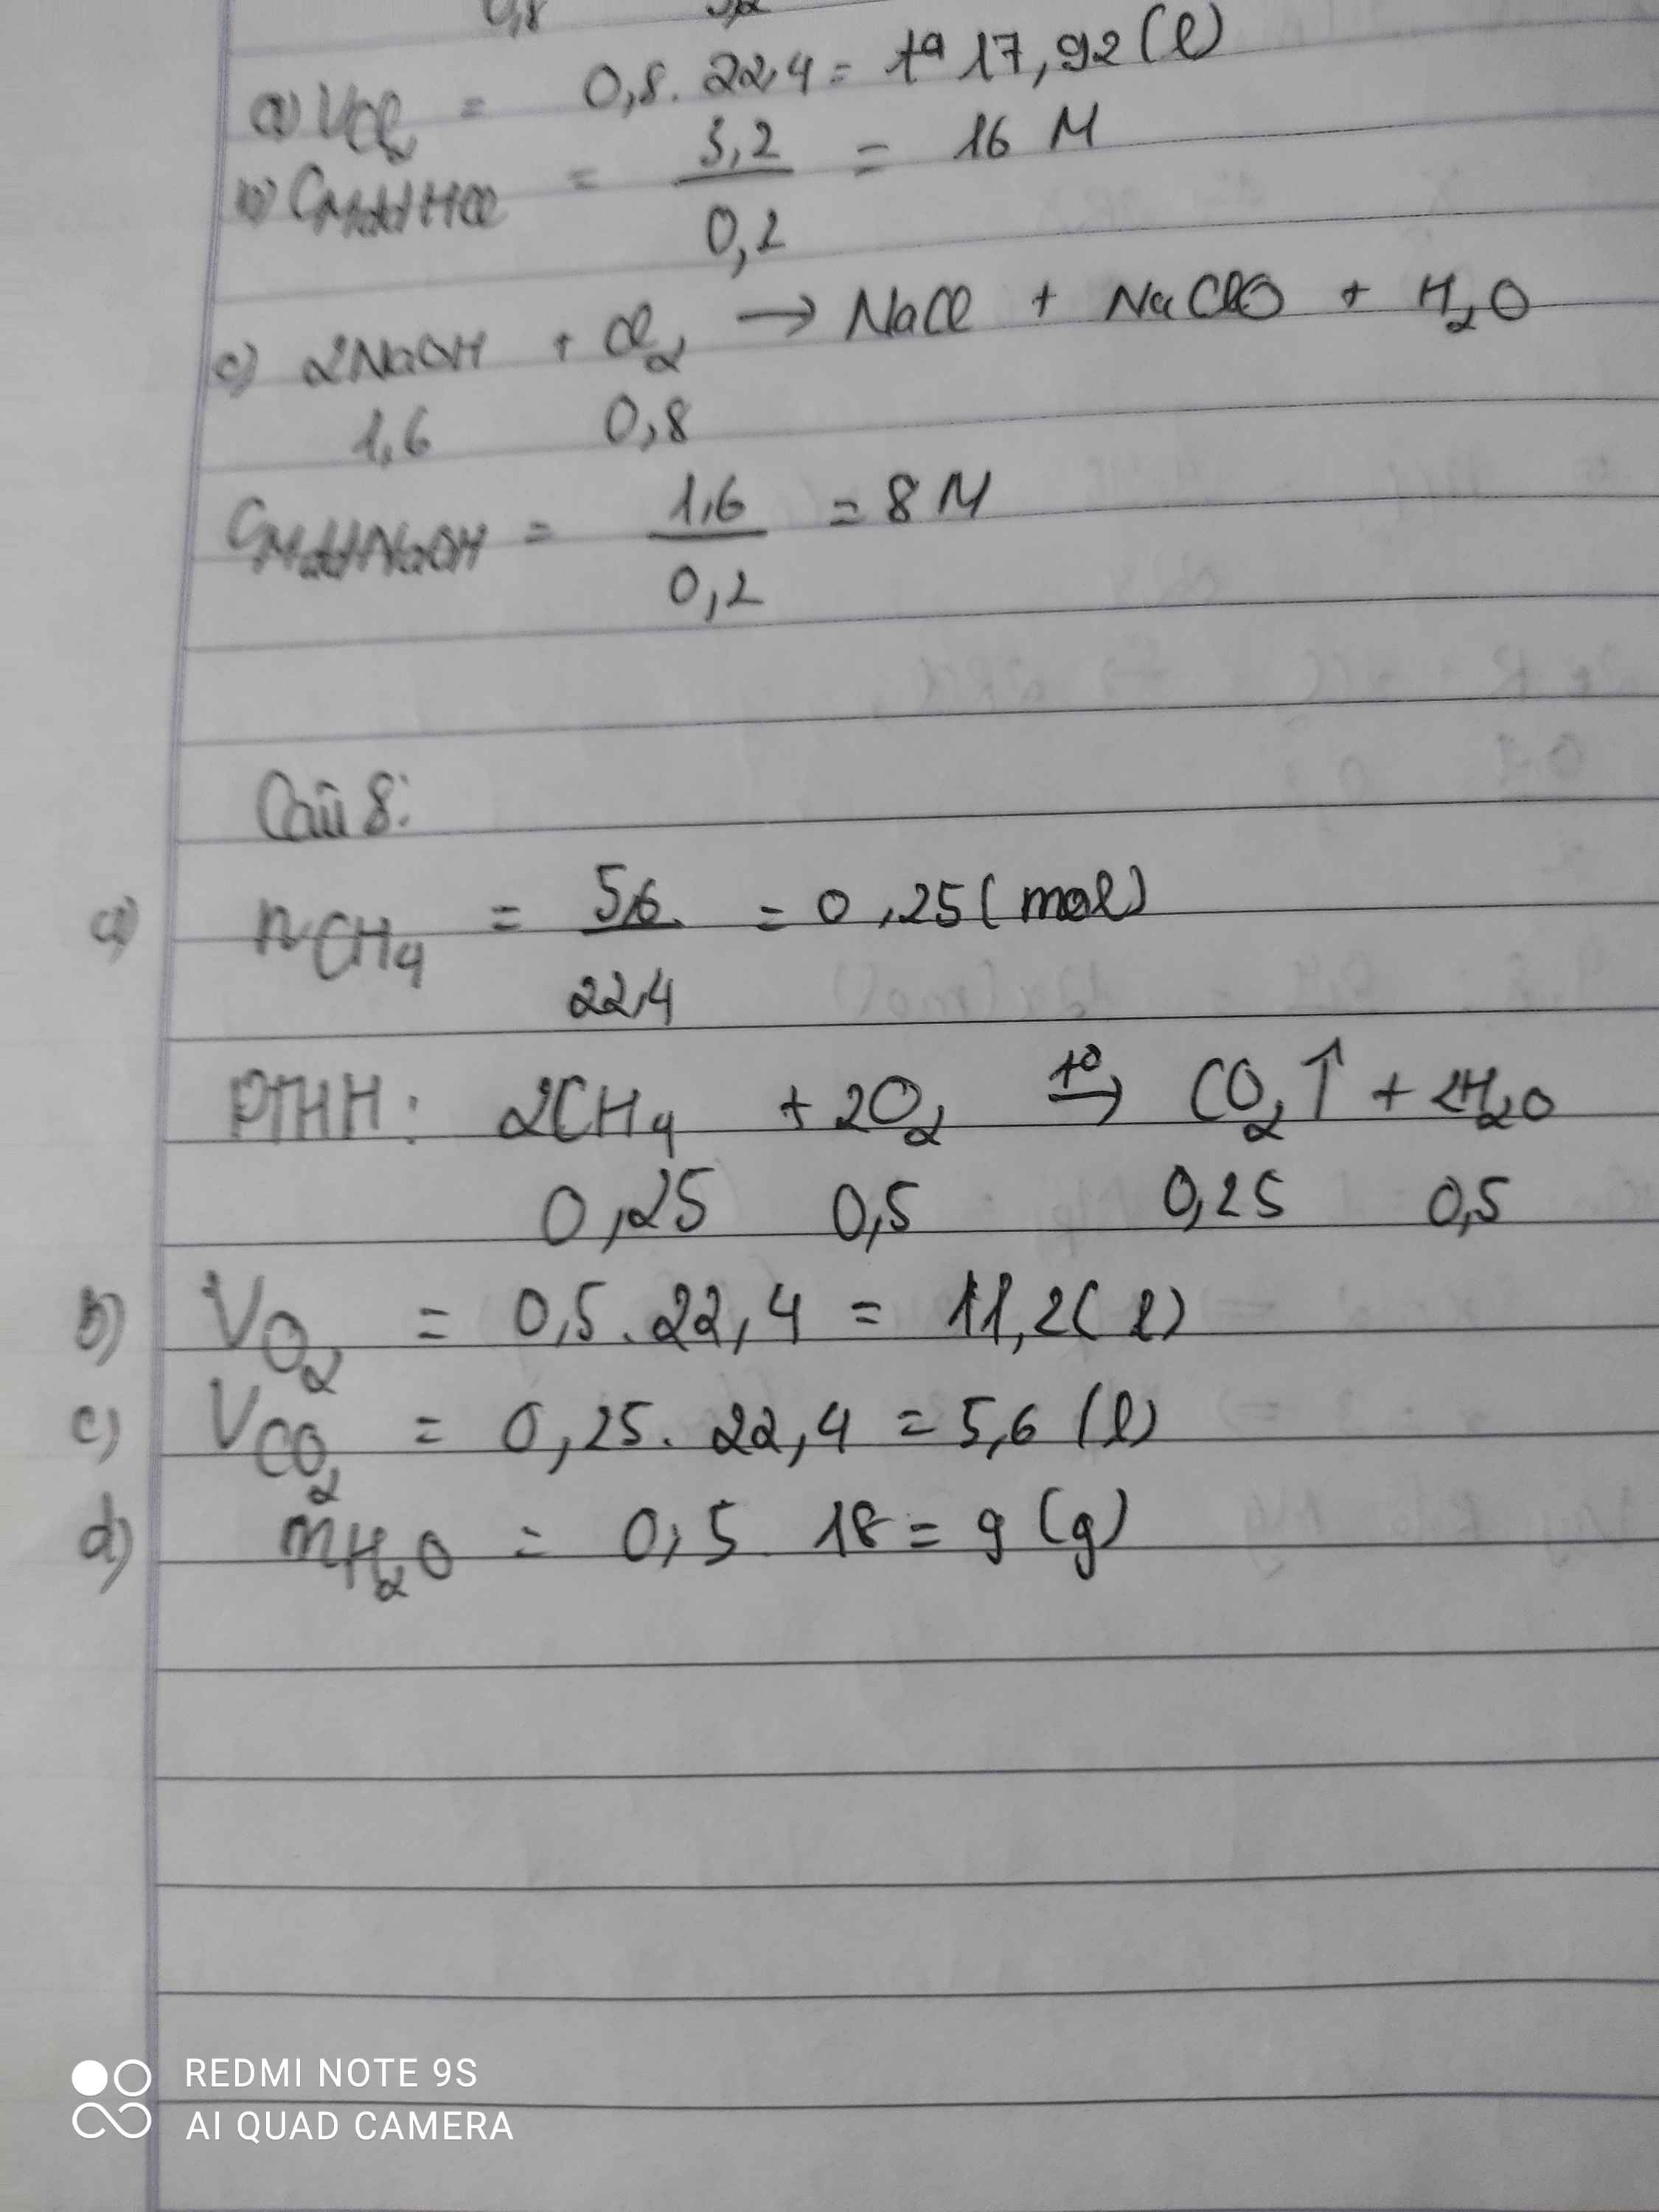 0,8 3,2
a) VCl2 = 0,8 . 22,4 = 17,92 (l)
b) CMddHCl = 3,2 / 0,2 = 16 M
c) 2NaOH + Cl2 → NaCl + NaClO + H2O
1,6 0,8
CMddNaOH = 1,6 / 0,2 = 8 M
Câu 8:
a) nCH4 = 5,6 / 22,4 = 0,25 (mol)
PTHH: 2CH4 + 2O2 t° → CO2↑ + 2H2O
0,25 0,5 0,25 0,5
b) VO2 = 0,5 . 22,4 = 11,2 (l)
c) VCO2 = 0,25 . 22,4 = 5,6 (l)
d) mH2O = 0,5 . 18 = 9 (g)
REDMI NOTE 9S
AI QUAD CAMERA